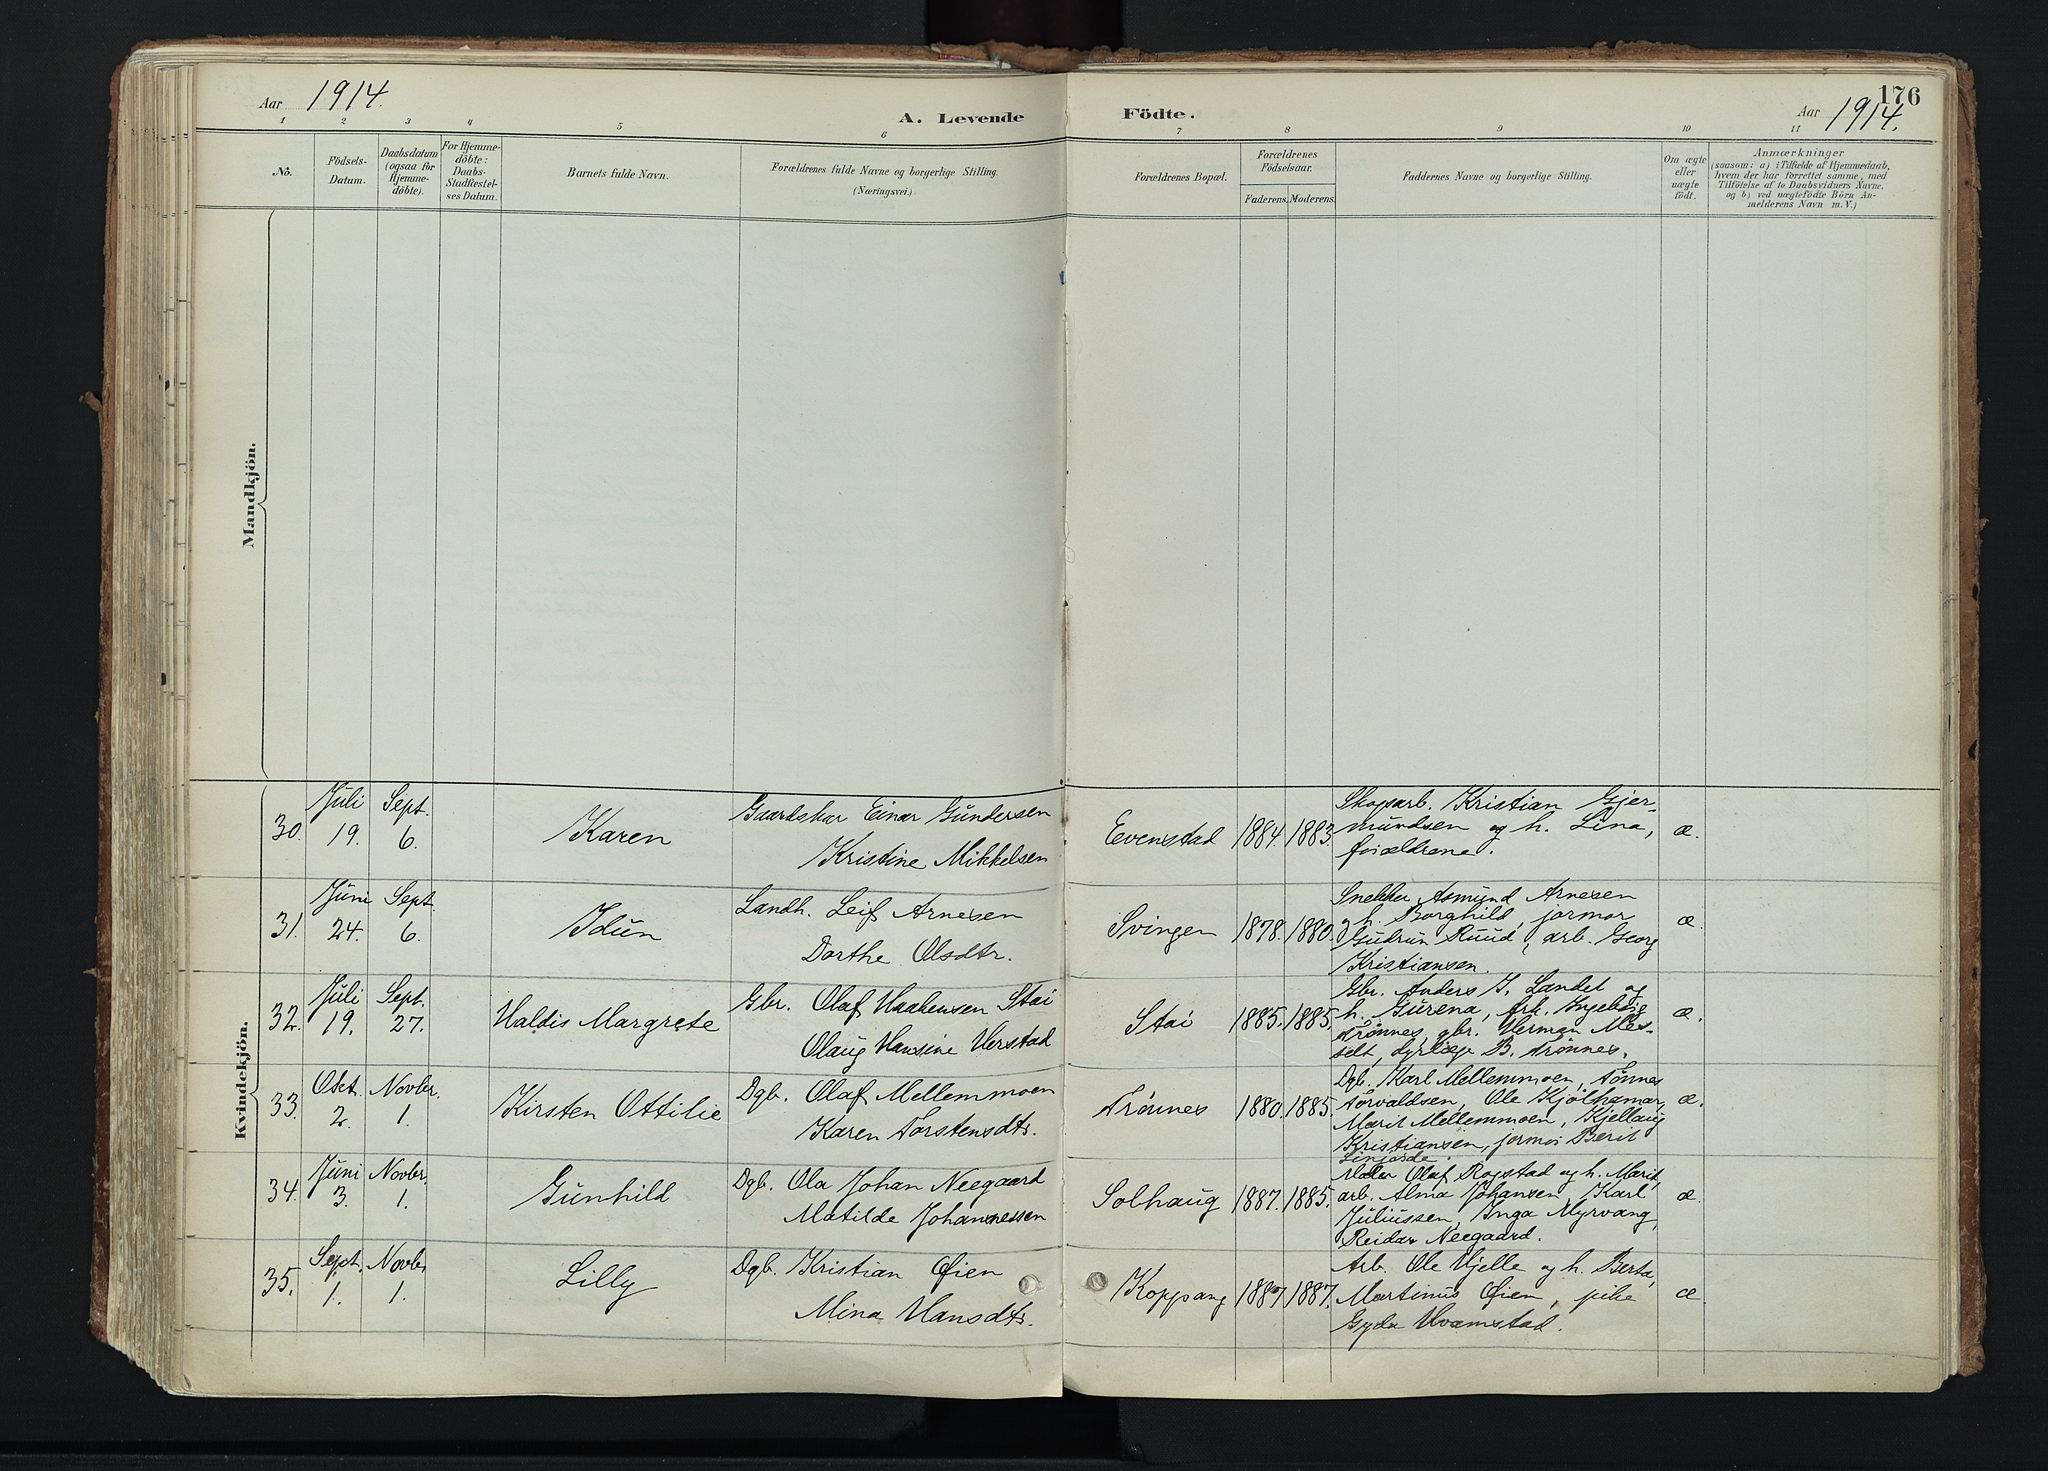 Aar 1914.
A. Levende Födte.
Aar 1914.
176
1 2 3 4 5 6 7 8 9 10 11
No.
Födsels-
Datum.
Daabsdatum
(ogsaa for
Hjemme-
döbte).
For Hjemme-
döbte:
Daabs-
Stadfæstel-
ses Datum.
Barnets fulde Navn.
Forældrenes fulde Navne og borgerlige Stilling.
(Næringsvei.)
Forældrenes Bopæl.
Forældrenes
Födselsaar.
Faderens. Moderens.
Faddernes Navne og borgerlige Stilling.
Om ægte
eller
uægte
födt.
Anmærkninger
(saasom: a) i Tilfælde af Hjemmedaab,
hvem der har forrettet samme, med
Tilföielse af to Daabsvidners Navne.
og b) ved uægtefödte Börn An-
melderens Navn m. V.)
Mandkjön.
Kvindekjön.
30. Juli 19. Sept. 6. Karen
Gaardskar Einar Gundersen
Kristine Mikkelsen
Evenstad 1884. 1883.
Skogarb. Kristian Gjer-
mundsen og h. Lina,
forældrene.
æ.
31. Juni 24. Sept. 6. Idun
Landh. Leif Arnesen
Dorthe Olsdtr.
Svingen 1878. 1880.
Snekker Asmund Arnesen
og h. Borghild, jormor
Gudrun Ruud, arb. Georg
Kristiansen.
æ.
32. Juli 19. Sept. 27. Haldis Margrete
Gbr. Olaf Haakensen Stai
Olaug Hansine Herstad
Stai 1885. 1885.
Gbr. Anders J. Landet og
h. Gurena, frk. Ingeborg
Trønnes, gbr. Herman Mes-
selt, dyrlæge B. Trønnes.
æ.
33. Okt. 2. Novbr. 1. Kirsten Ottilie
Dgb. Olaf Mellemmoen
Karen Torstensdtr.
Trønnes 1880. 1885.
Dgb. Karl Mellemmoen, Tønnes
Torvaldsen, Ole Kjølhamar,
Marit Mellemmoen, Kjellaug
Kristiansen, jormor Berit
æ.
34. Juni 3. Novbr. 1. Gunhild
Dgb. Ola Johan Neegaard
Matilde Johannessen
Solhaug 1887. 1885.
Olaf Rogstad og h. Marit,
arb. Alma Johansen, Karl
Juliussen, Inga Myrvang,
Reidar Neegaard.
æ.
35. Sept. 1. Novbr 1. Lilly
Dgb. Kristian Øien
Mina Hansdtr.
Koppang 1887. 1887.
Arb. Ole Hjelle og h. Berta,
Martinus Øien, pike
Gyda Hvamstad.
æ.